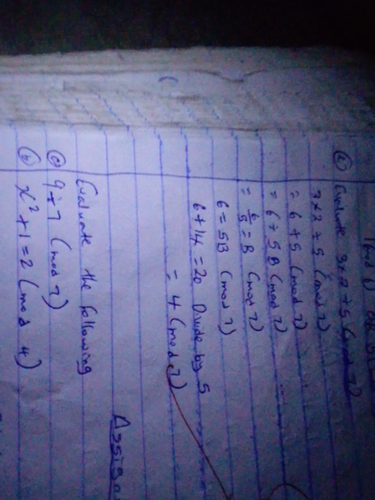 Evaluate 3x2÷5 (mod 7)
3x2÷5 (mod 7)
= 6÷5 (mod 7)
= 6÷5 B (mod 7)
= 6/5 = B (mod 7)
6 = 5B (mod 7)
6+14 = 20 Divide by 5
= 4 (mod 7)
Assign
Evaluate the following
a) 9÷7 (mod 7)
b) x² + 1 = 2 (mod 4)